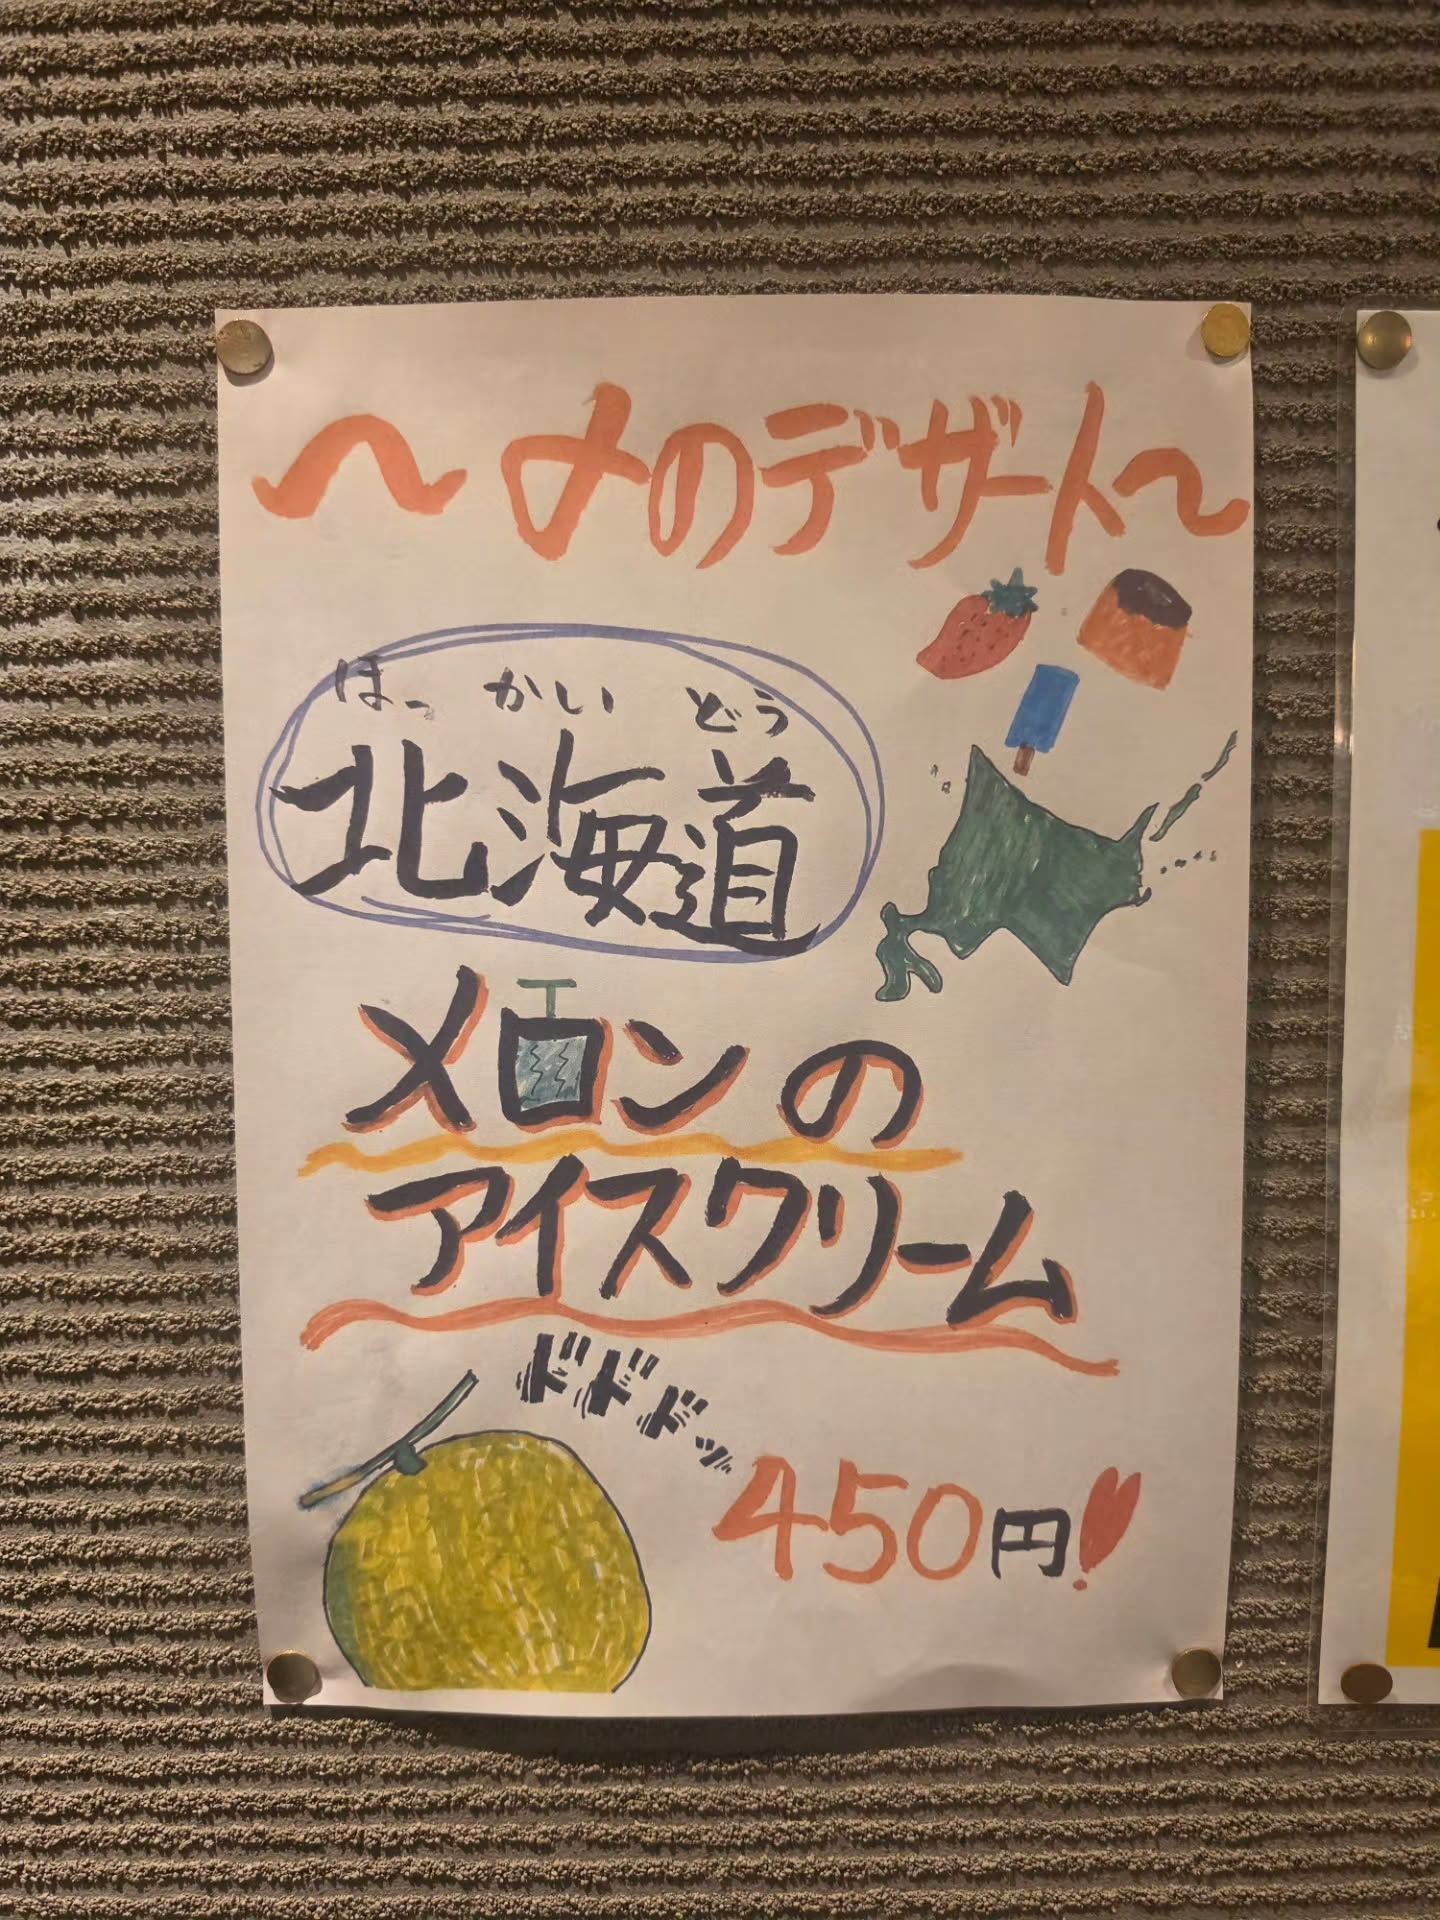 〜〆のデザート〜
ほっかいどう
北海道
メロンの
アイスクリーム
ドドドッ
450円!